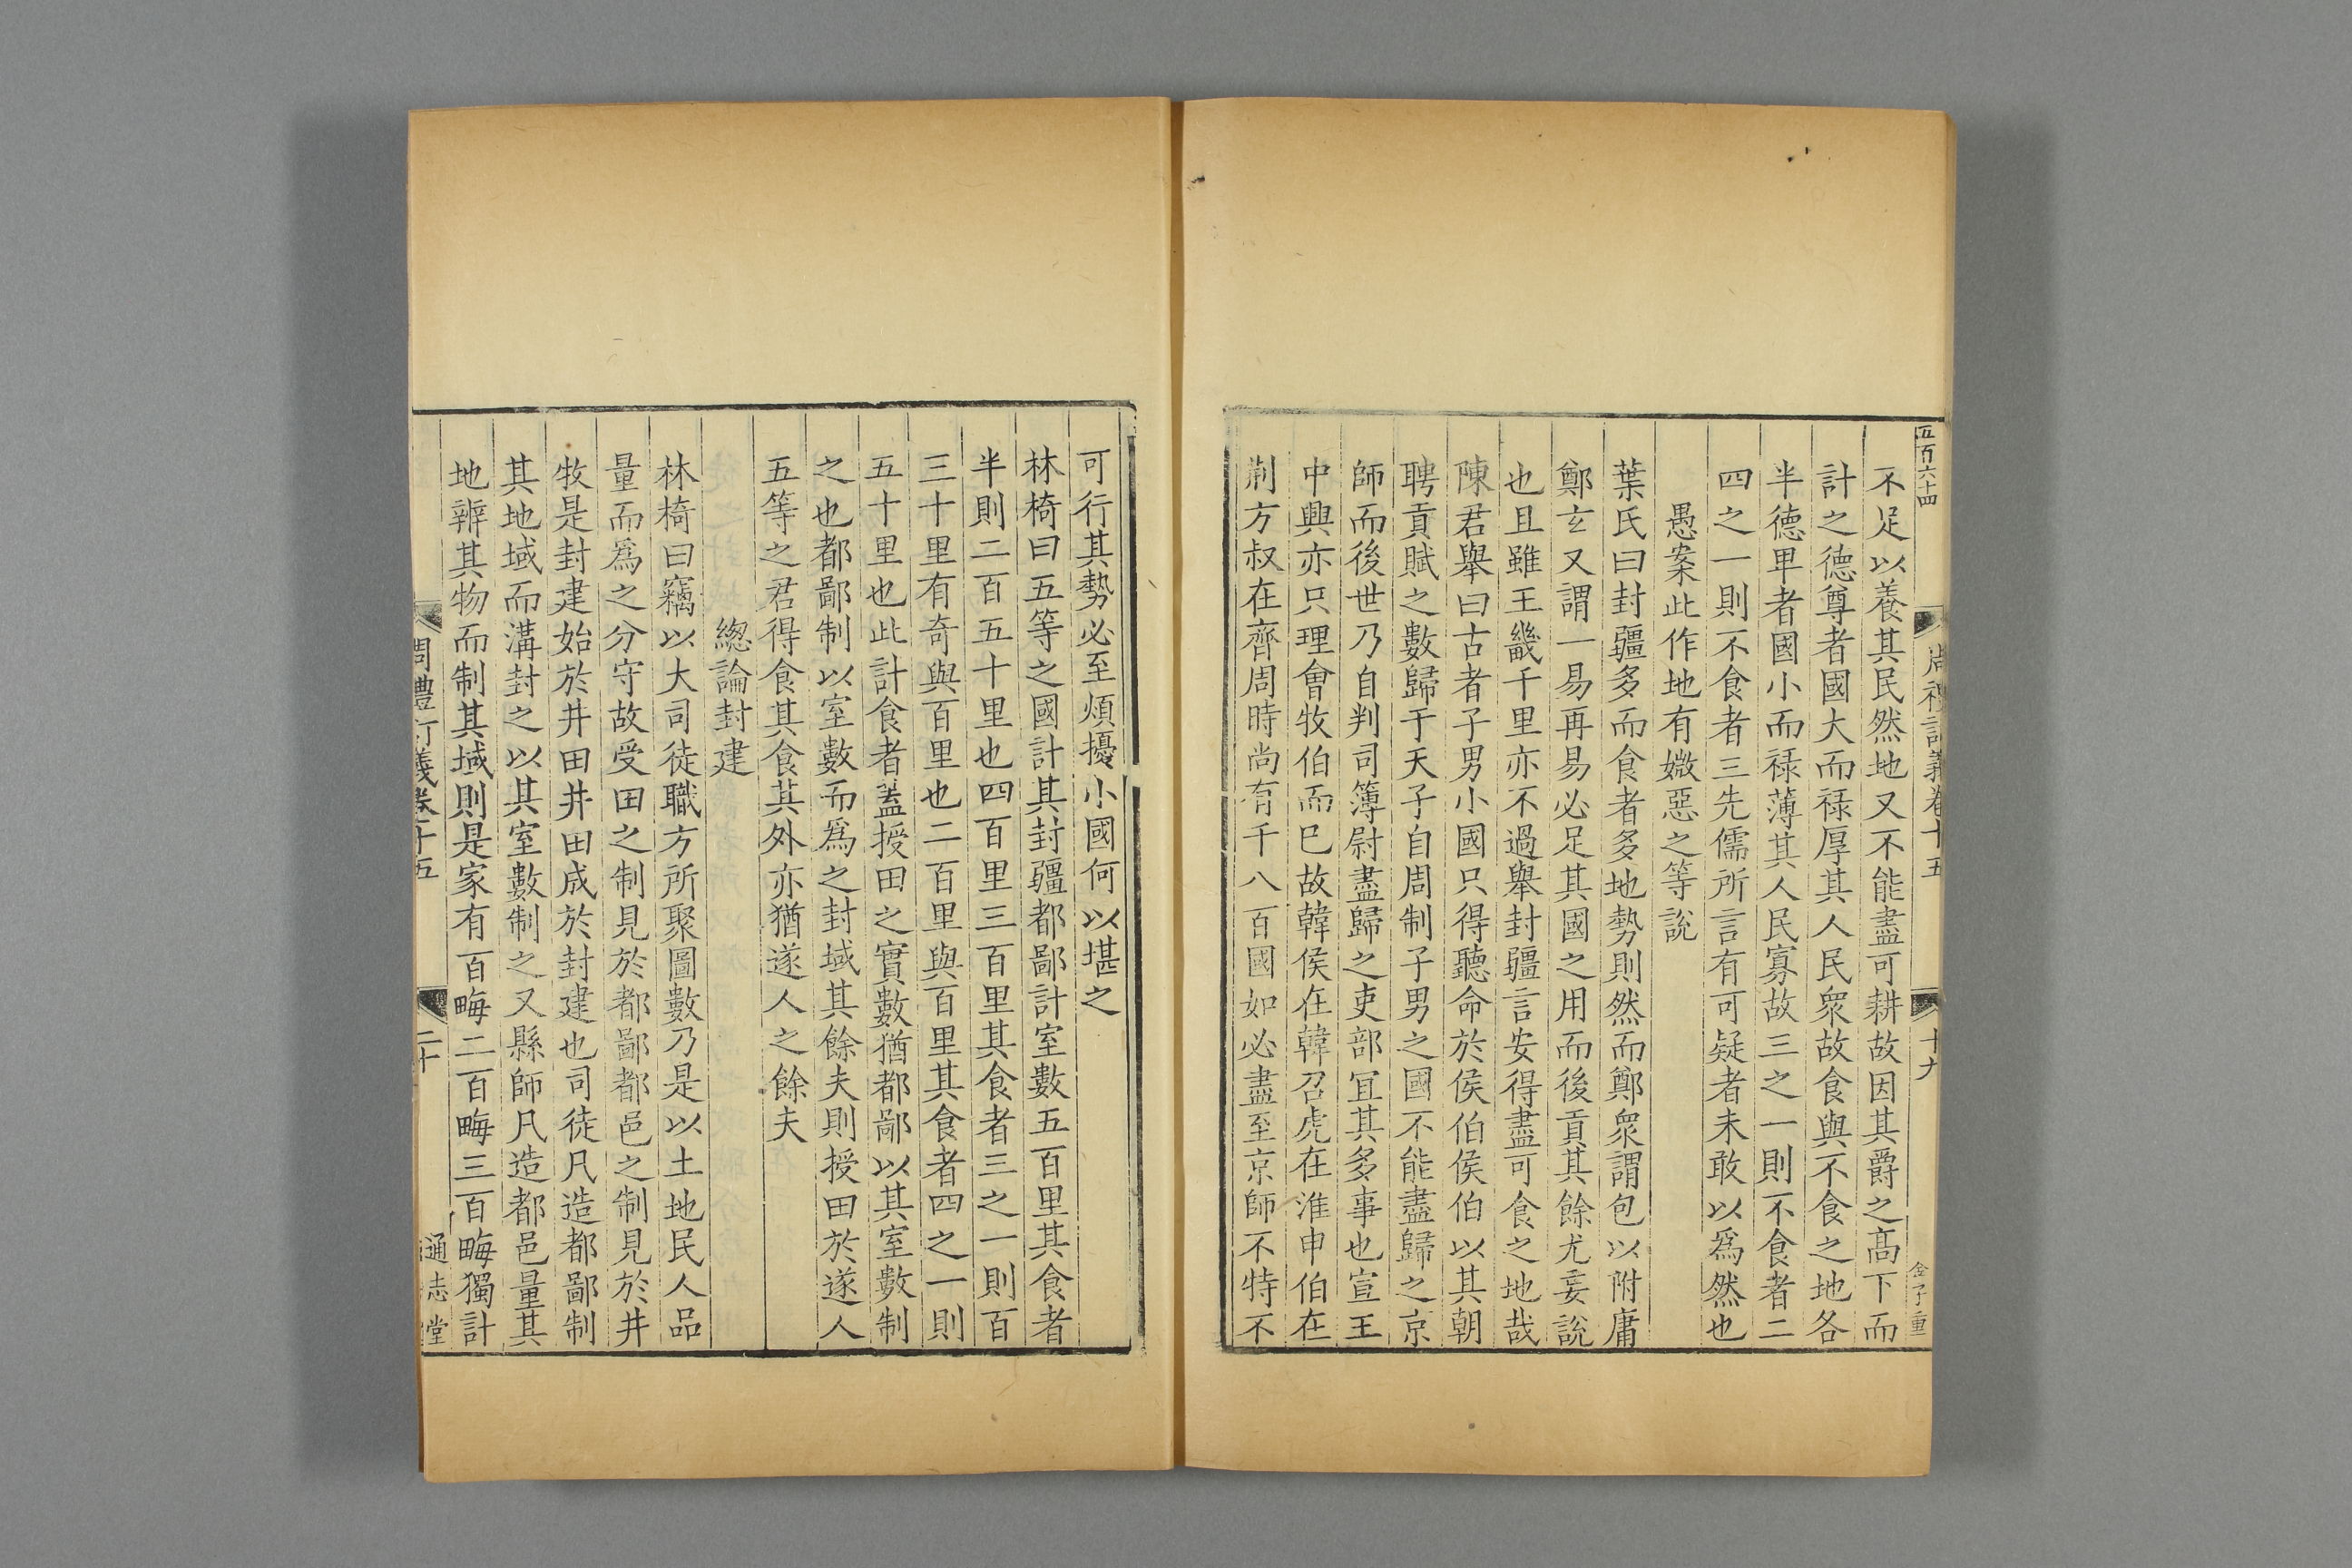 五百六十四
周禮訂義卷十五
十九
金子重
不足以養其民然地又不能盡可耕故因其爵之高下而
計之德尊者國大而祿厚其人民衆故食與不食之地各
半德卑者國小而祿薄其人民寡故三之一則不食者二
四之一則不食者三先儒所言有可疑者未敢以爲然也
愚案此作地有媺惡之等説
葉氏曰封疆多而食者多地勢則然而鄭衆謂包以附庸
鄭玄又謂一易再易必足其國之用而後貢其餘尤妄説
也且雖王畿千里亦不過舉封疆言安得盡可食之地哉
陳君舉曰古者子男小國只得聽命於侯伯侯伯以其朝
聘貢賦之數歸于天子自周制子男之國不能盡歸之京
師而後世乃自判司簿尉盡歸之吏部冝其多事也宣王
中興亦只理會牧伯而巳故韓侯在韓召虎在淮申伯在
荆方叔在齊周時尚有千八百國如必盡至京師不特不
可行其勢必至煩擾小國何以堪之
林椅曰五等之國計其封疆都鄙計室數五百里其食者
半則二百五十里也四百里三百里其食者三之一則百
三十里有奇與百里也二百里與百里其食者四之一則
五十里也此計食者蓋授田之實數猶都鄙以其室數制
之也都鄙制以室數而爲之封域其餘夫則授田於遂人
五等之君得食其食其外亦猶遂人之餘夫
緫論封建
林椅曰竊以大司徒職方所聚圖數乃是以土地民人品
量而爲之分守故受田之制見於都鄙都邑之制見於井
牧是封建始於井田井田成於封建也司徒凡造都鄙制
其地域而溝封之以其室數制之又縣師凡造都邑量其
地辨其物而制其域則是家有百畮二百畮三百畮獨計
周禮訂義卷十五
二十
通志堂